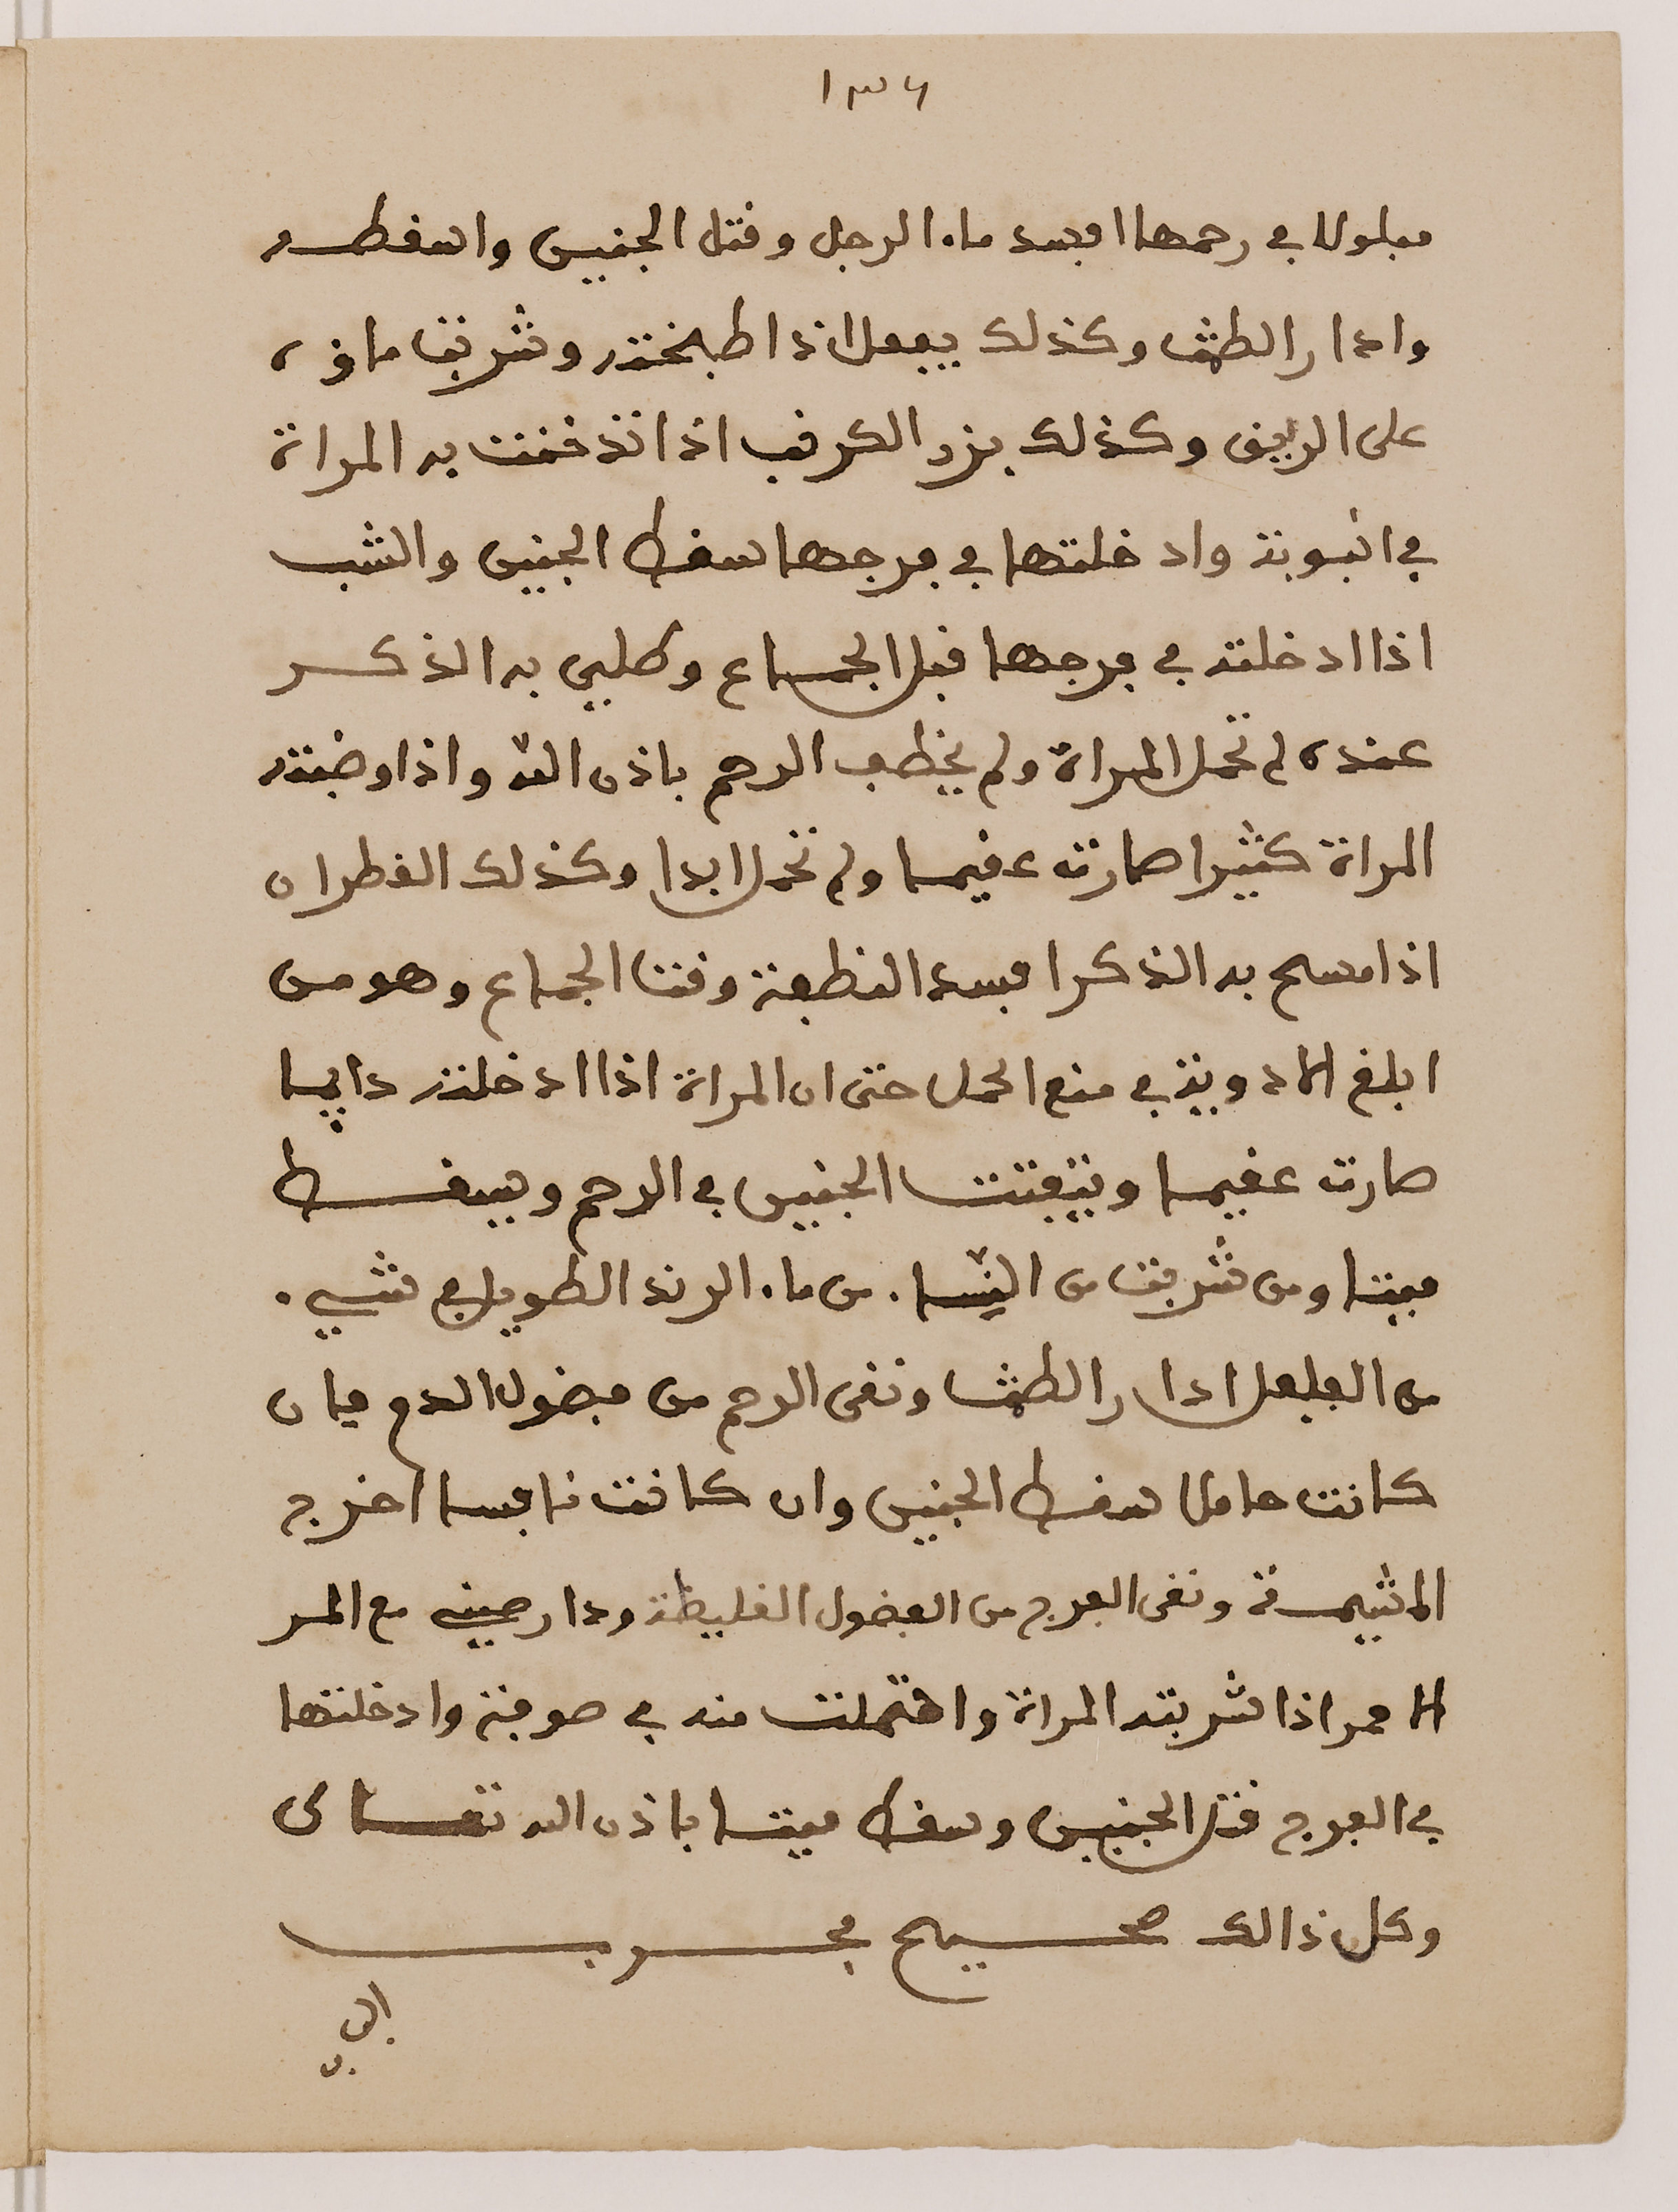 ١٣٦
مبلولا في رحمها افسد ماء الرجل وقتل الجنين واسقطه
وادار الطمث وكذلك يفعل اذا طبخته وشربت ماؤه
على الريق وكذلك بزر الكرنب اذا تدخنت به المراة
في انبوبة وادخلتها في فرجها سقط الجنين والشب
اذا ادخلته في فرجها قبل الجماع وطلي به الذكر
عنده لم تحمل المراة ولم يخطب الرحم باذن الله واذا
المراة كثيرا صارت عقيما ولم تحمل ابدا وكذلك القطران
اذا مسح به الذكر افسد النطفة وقت الجماع وهو من
ابلغ الادوية في منع الحمل حتى ان المراة اذا ادخلته دايما
صارت عقيما ويتفتت الجنين في الرحم ويسقط
ميتا ومن شربت من النساء من ماء الرند الطويل مع شيء
من الفلفل ادار الطمث ونقى الرحم من فضول الدم فان
كانت حاملا سقط الجنين وان كانت نافسا اخرج
المشيمة ونقى الفرج من الفضول الغليظة ودار صيني مع المر
الاحمر اذا شربته المراة واحتملت منه في صوفة وادخلتها
في الفرج قتل الجنين وسقط ميتا باذن الله تعالى
وكل ذالك صحيح مجرب